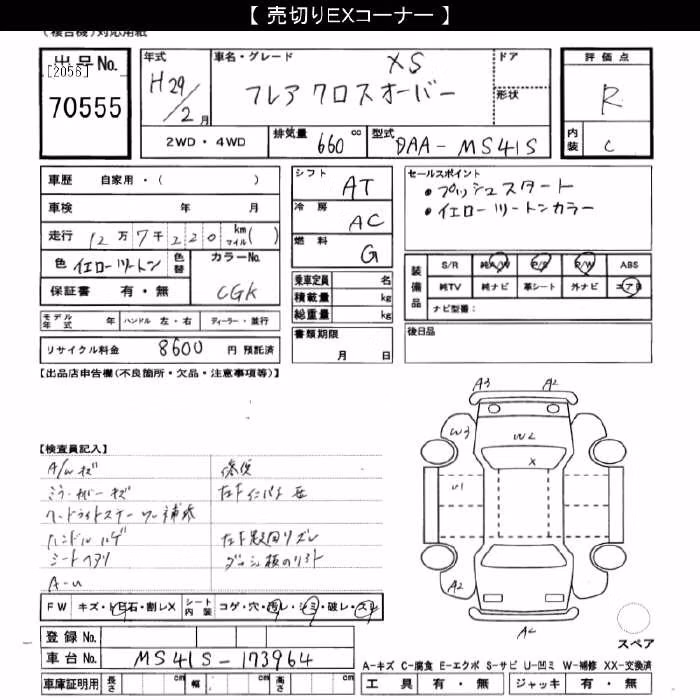 【 売切りEXコーナー 】
(複合機)対応用紙
出品No.
[2056]
70555
年式
H29/2月
車名・グレード
XS
フレア クロスオーバー
ドア
形状
評価点
R
内装
C
2WD・4WD
排気量 660 cc
型式 DAA-MS41S
車歴 自家用・( )
車検 年 月
走行 12万7千220 km マイル( )
色 イエローツートン
色替
カラーNo.
CGK
保証書 有・無
シフト AT
冷房 AC
燃料 G
乗車定員 名
積載量 kg
総重量 kg
セールスポイント
・プッシュスタート
・イエローツートンカラー
装備品
S/R 純A/W P/S P/W ABS
純TV 純ナビ 革シート 外ナビ エアB
ナビ型番：
モデル年式 年 ハンドル 左・右 ディーラー・並行
書類期限
月 日
後日品
リサイクル料金 8600 円 預託済
【出品店申告欄(不良箇所・欠品・注意事項等)】
A3 A2
W3
W2
X
U1
A2
A2
【検査員記入】
A/Wキズ
ヘッドライトステー
ハンドルハゲ
シートヘタリ
FW キズ・トビ石・割レX シート内装 コゲ・穴・汚レ・シミ・破レ・スレ
登録No.
車台No. MS41S-173964
車庫証明用 長さ cm 幅 cm 高さ cm
スペア
A-キズ C-腐食 E-エクボ S-サビ U-凹ミ W-補修 XX-交換済
工具 有・無 ジャッキ 有・無